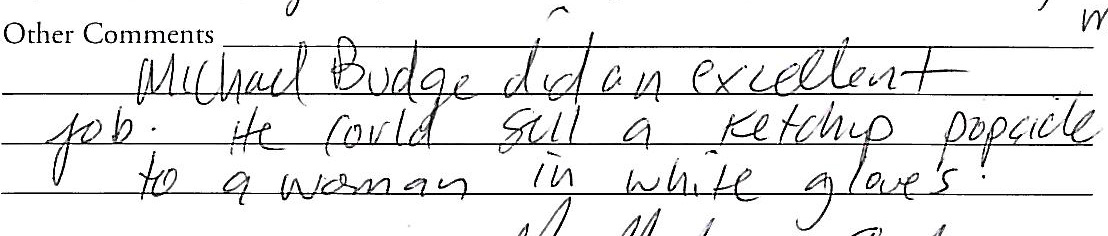 Other Comments
Michael Budge did an excellent
job. He could sell a ketchup popcicle
to a woman in white gloves.